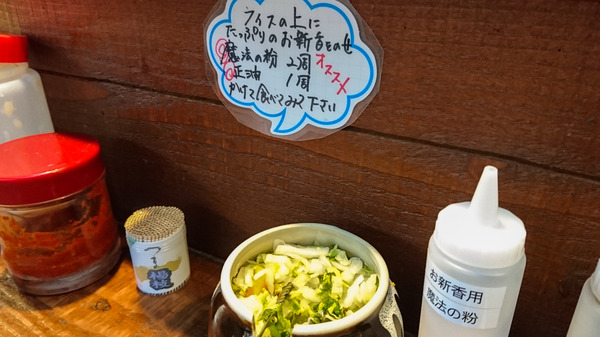 ライスの上に
たっぷりのお新香をのせ
①魔法の粉 2周
②正油 1周
オススメ
かけて食べてみて下さい
つま
お新香用
魔法の粉